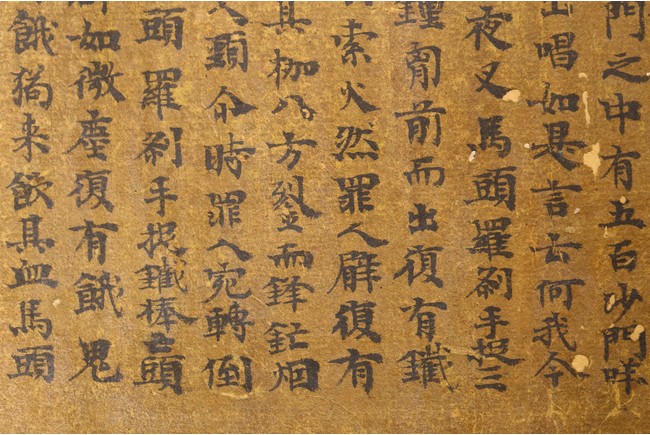 門之中有五百沙門
唱如是言云何我今
夜叉馬頭羅刹手捉三
胷前而出復有鐵
索火然罪人臂復有
其枷八方而鋒鋩烟
頸尒時罪人宛轉倒
頭羅刹手捉鐵棒頭
如微塵復有餓鬼
餓狗来飲其血馬頭